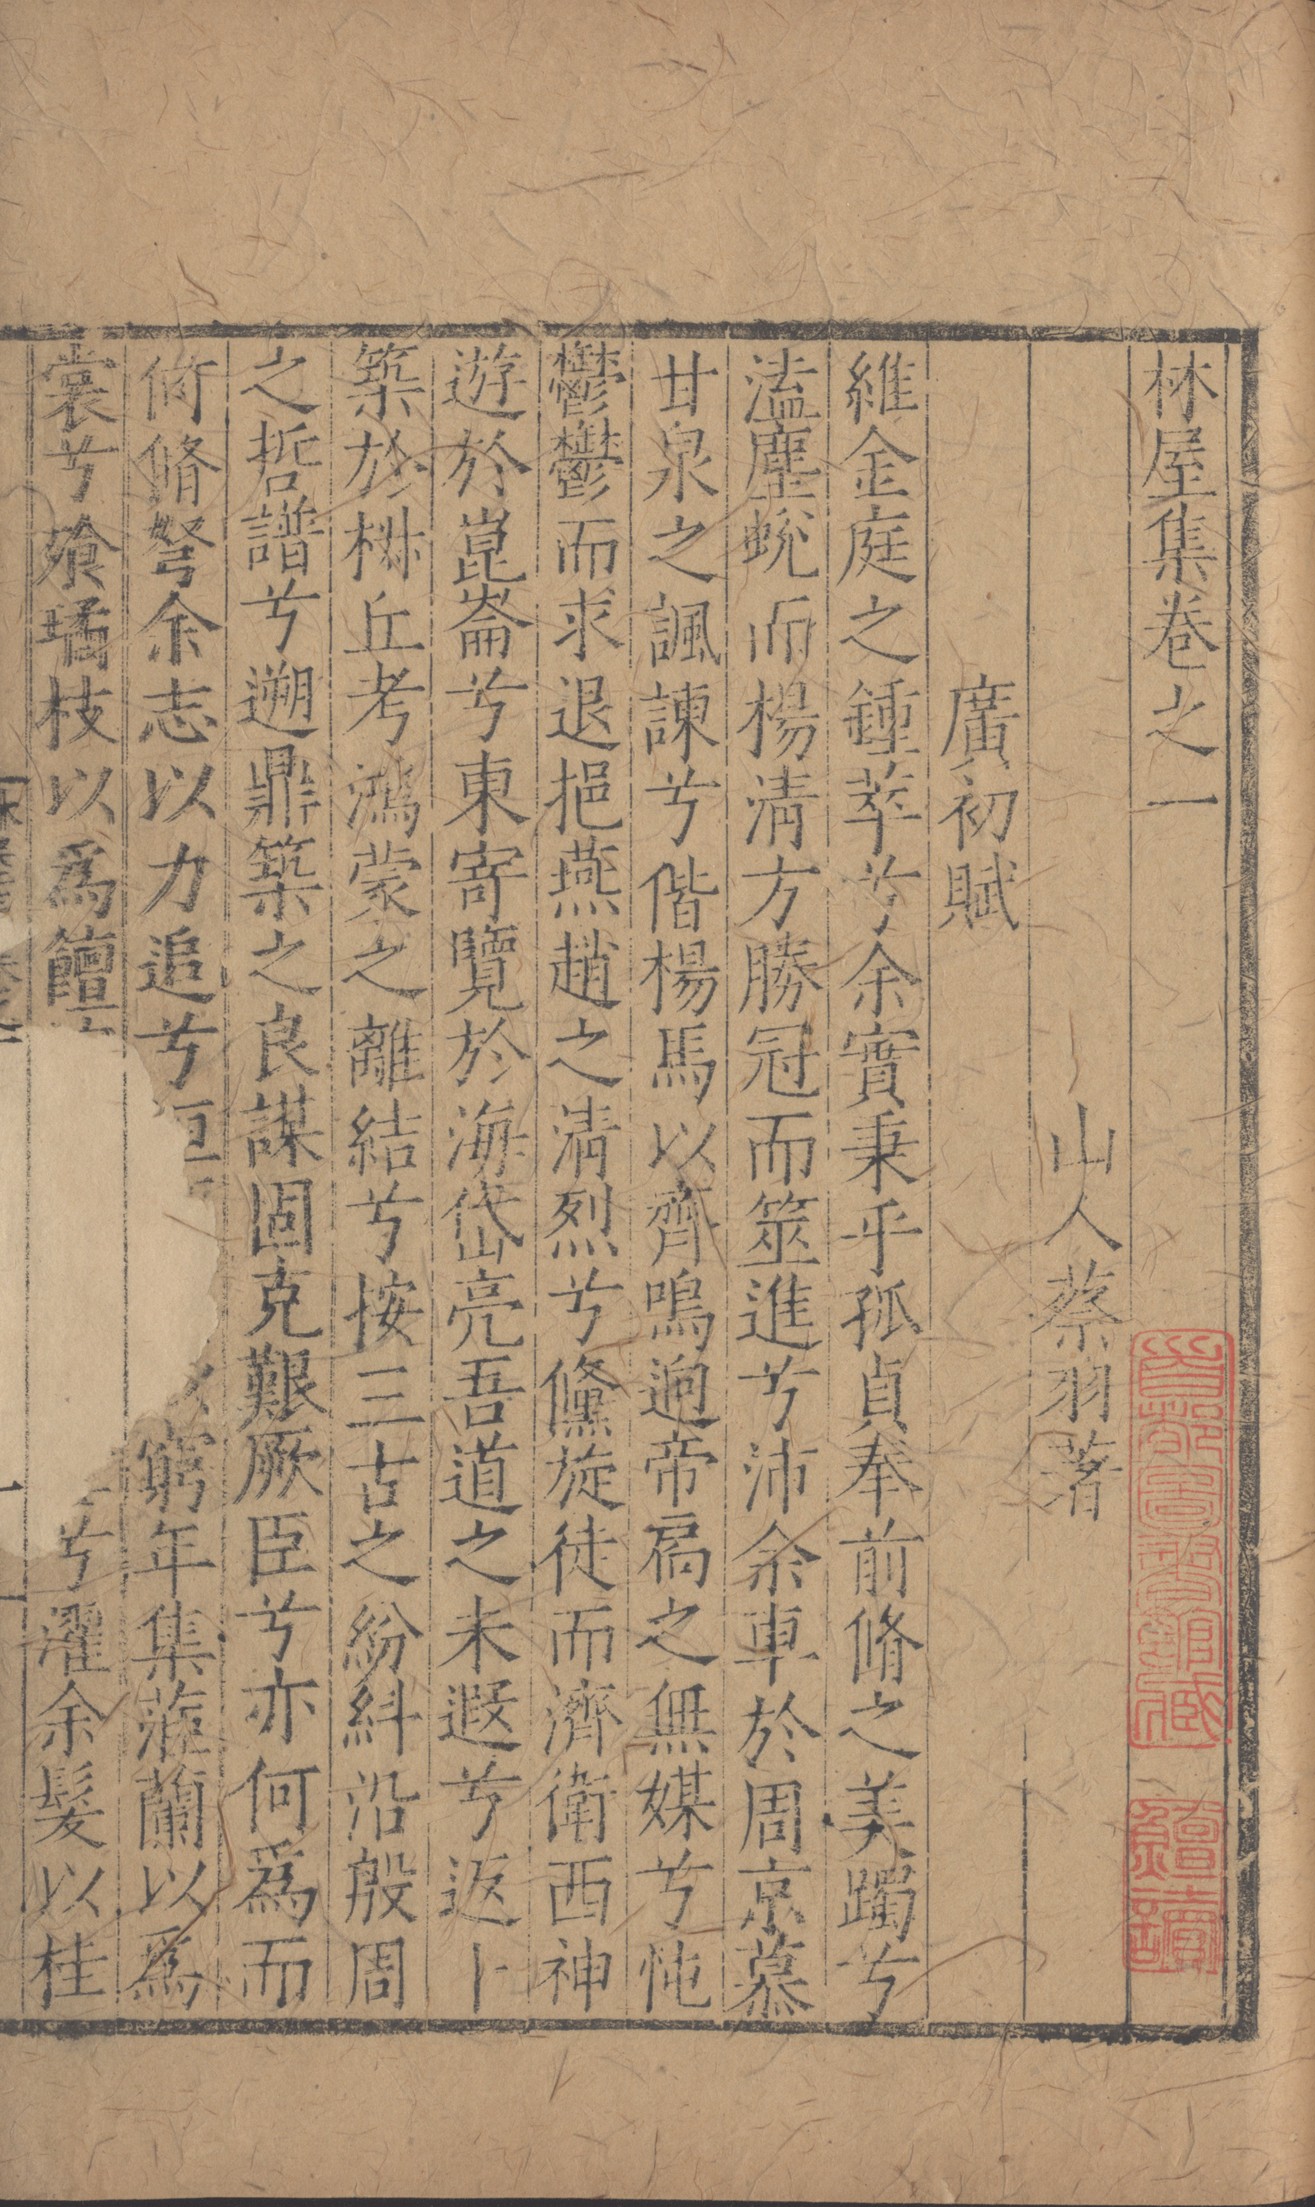 林屋集卷之一
山人蔡羽著
廣初賦
維金庭之鍾萃兮余實秉乎孤貞奉前脩之美躅兮
溘塵蛻而楊清方勝冠而筮進兮沛余車於周京慕
甘泉之諷諫兮偕楊馬以齊鳴迥帝扃之無媒兮忳
鬱鬱而求退挹燕趙之清烈兮儻旋徒而濟衛西神
遊於崑崙兮東寄覽於海岱亮吾道之未遐兮返卜
築於樹丘考鴻蒙之離結兮按三古之紛糾沿殷周
之哲譜兮遡鼎築之良謀固克艱厥臣兮亦何為而
脩弩余志以力追兮 窮年集蓀蘭以為
裳兮飡璚枝以為饘 兮濯余髮以桂
首都圖書館藏